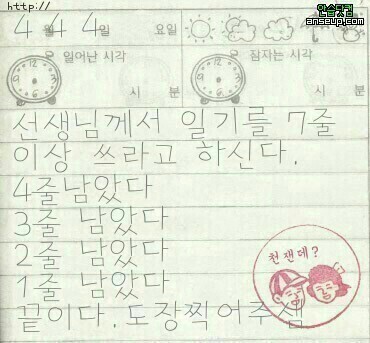 http://
안습닷컴
anseup.com
4월 4일 요일
일어난 시각
잠자는 시각
12 3 6 9
12 3 6 9
시 분
시 분
선생님께서 일기를 7줄
이상 쓰라고 하신다.
4줄남았다
3줄 남았다
2줄 남았다
1줄 남았다
끝이다. 도장찍어주셈
천잰데?